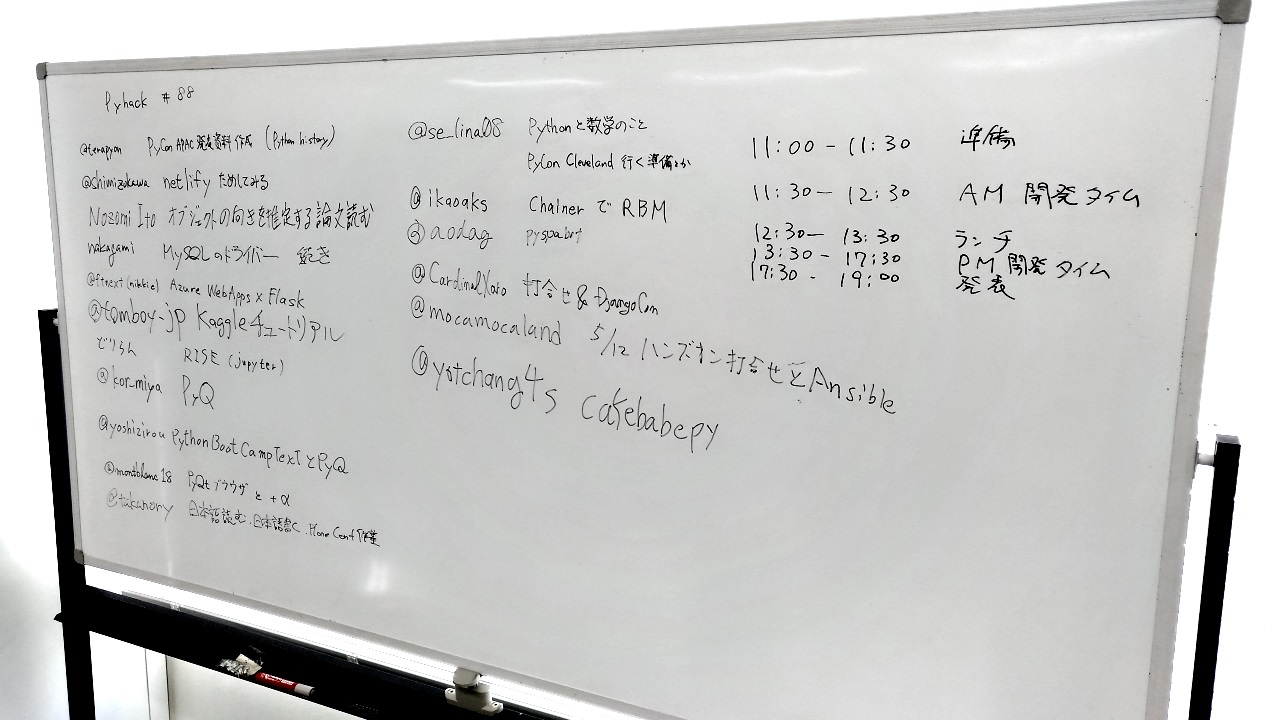 Pyhack #88
@terapyon PyCon APAC 発表資料作成 (Python history)
@shimizukawa netlify ためしてみる
Nozomi Ito オブジェクトの向きを推定する論文読む
nakagami MySQLのドライバー 続き
@ftnext(nikkie) Azure WebApps × Flask
@tomboy-jp Kaggleチュートリアル
でりらん RISE (jupyter)
@kor_miya PyQ
@yoshizirou Python Boot Camp TexT と PyQ
@montblanc18 PyQtブラウザ と +α
@takanory 日本語読む、日本語書く、Plone Conf 作業
@se_lina08 Pythonと数学のこと
PyCon Cleveland 行く準備とか
@ikaoaks Chainer で RBM
@aodag
@CardinalXaro 打合せ & DjangoCon
@mocamocaland 5/12 ハンズオン打合せとAnsible
@yotchang4s cafebabepy
11:00 - 11:30 準備
11:30 - 12:30 AM 開発タイム
12:30 - 13:30 ランチ
13:30 - 17:30 PM 開発タイム
17:30 - 19:00 発表